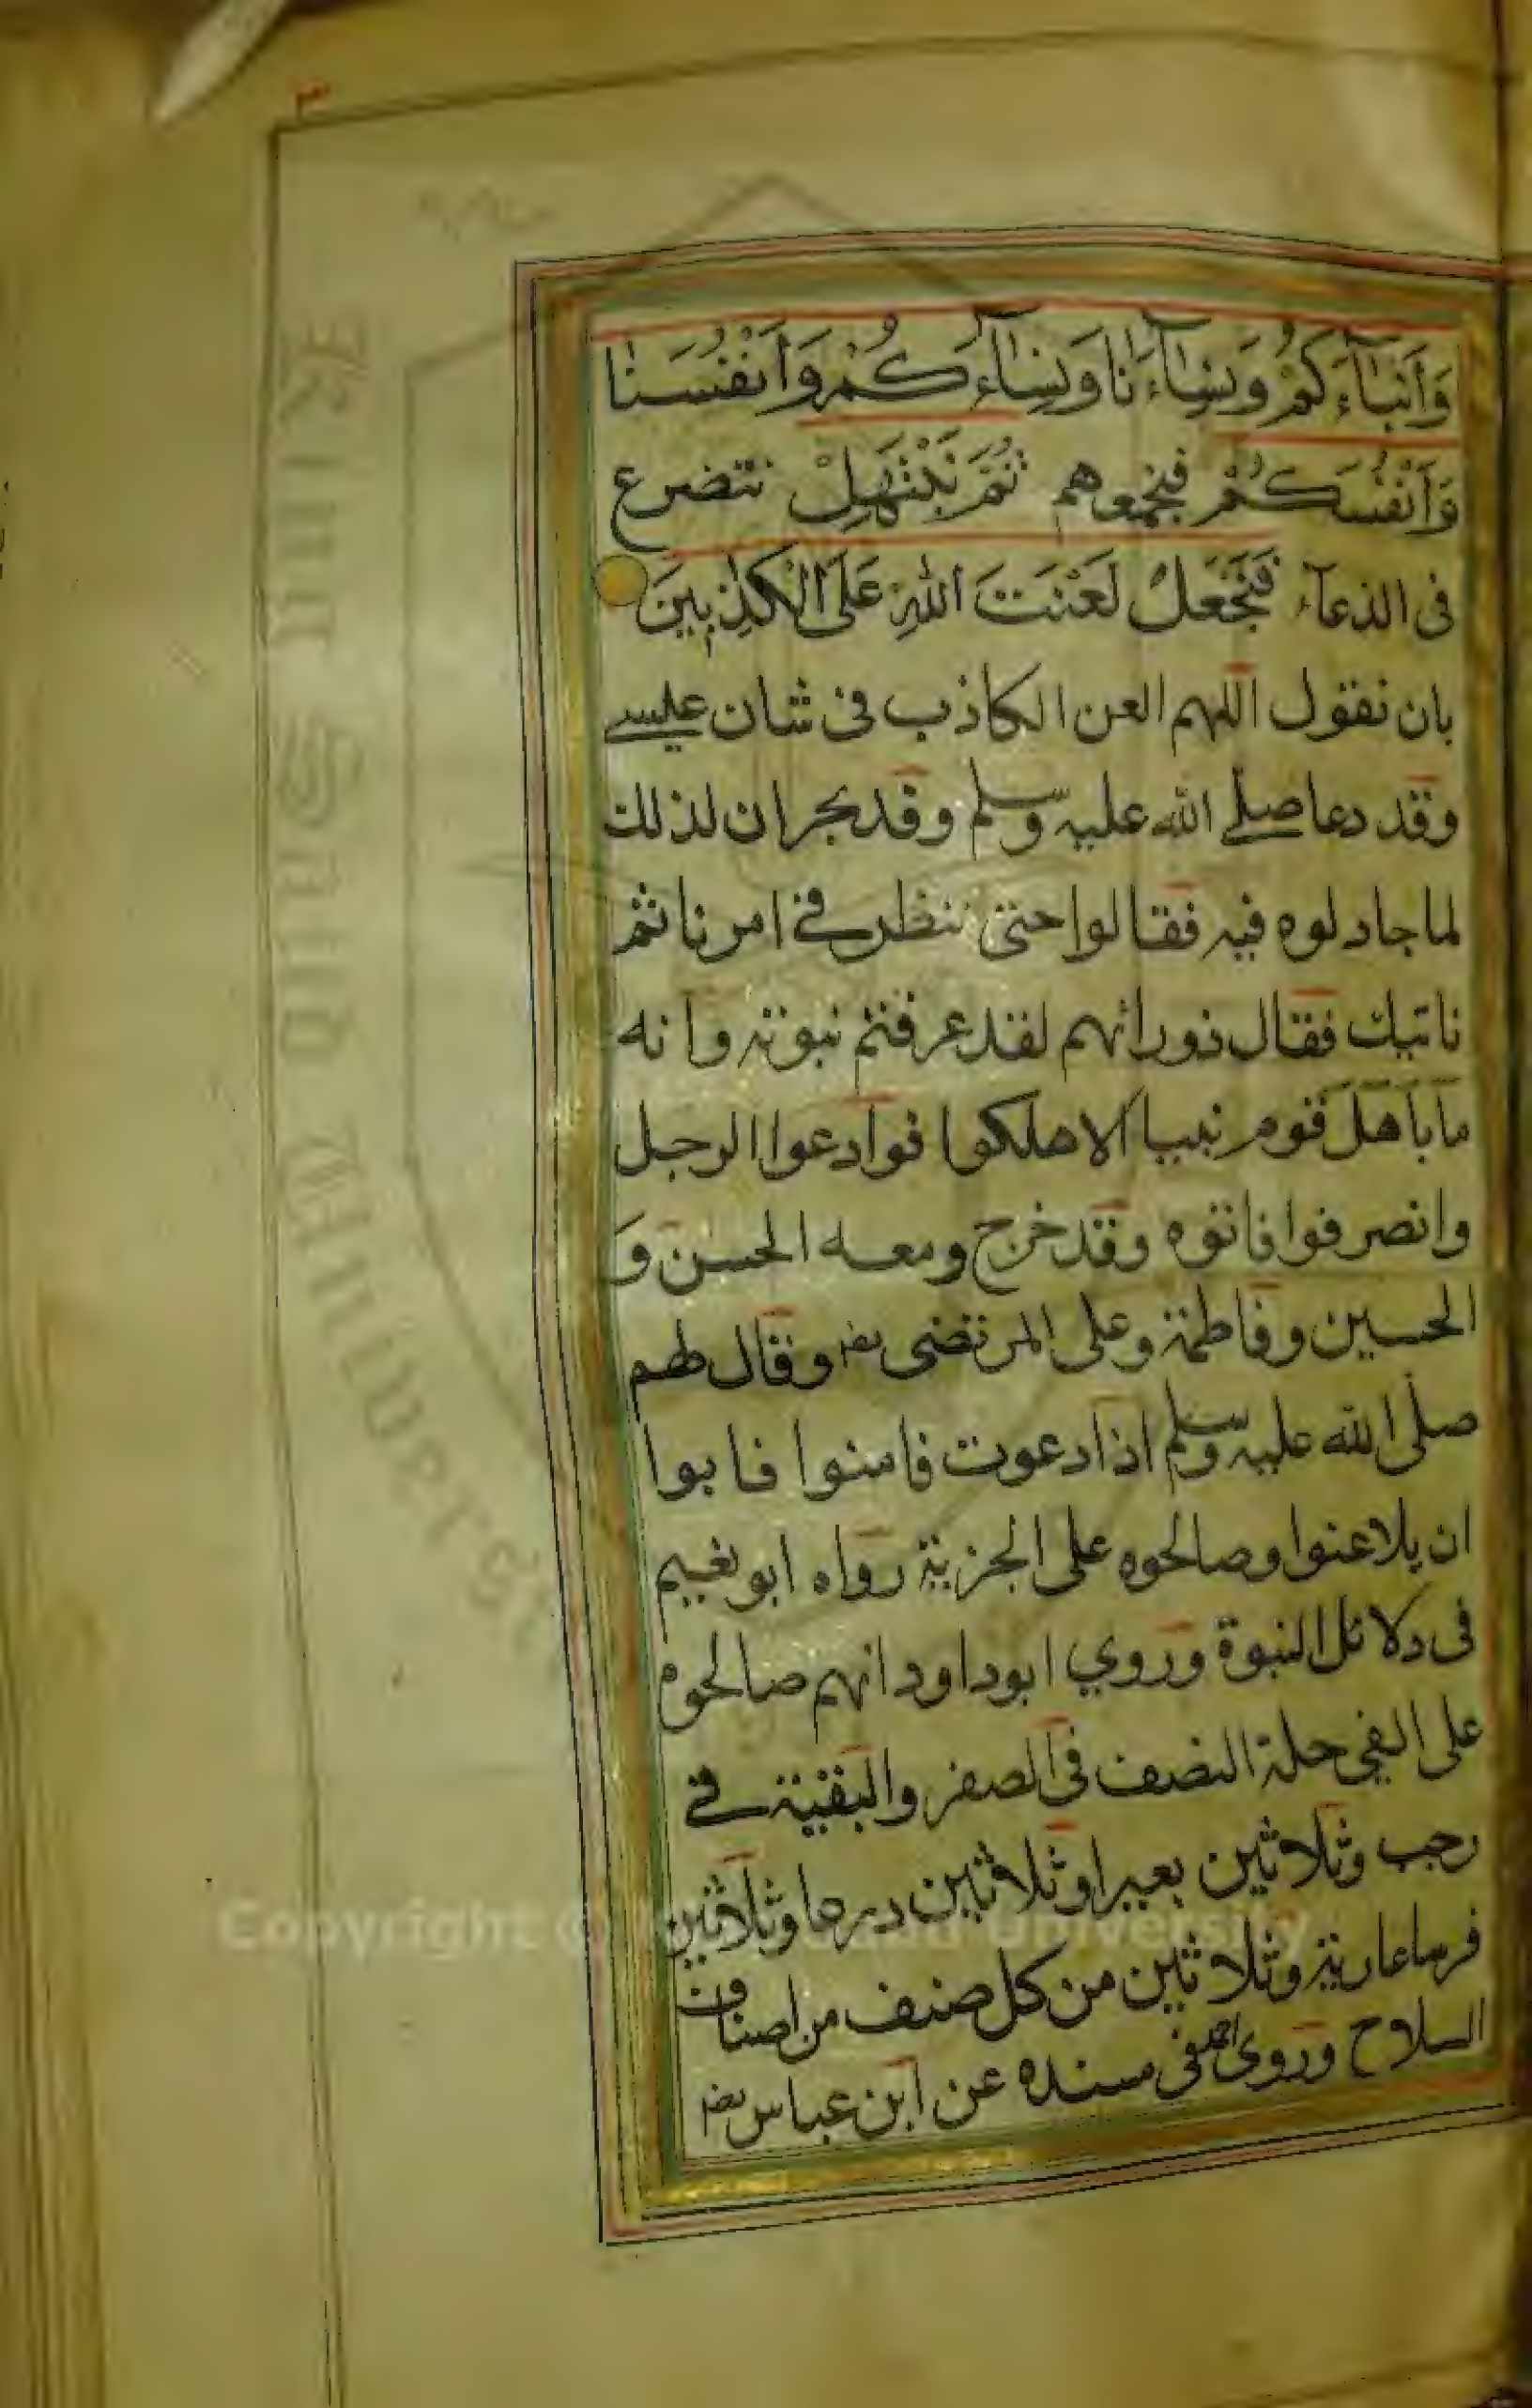 ٣
وَأَبْنَآءَكُمْ وَنِسَآءَنَا وَنِسَآءَكُمْ وَأَنْفُسَنَا
وَأَنْفُسَكُمْ فنجمعهم ثُمَّ نَبْتَهِلْ نتضرع
فى الدعآء فَنَجْعَلْ لَعْنَتَ اللهِ عَلَى الْكٰذِبِينَ
بان نقول اللهم العن الكاذب فى شان عيسے
وقد دعا صلے الله عليه وسلم وفد نجران لذلك
لما جادلوه فيه فقالوا حتى ننظر فے امرنا ثم
ناتيك فقال ذو رائهم لقد عرفتم نبوته وانه
ما باهل قوم نبيا الا هلكوا فوادعوا الرجل
وانصرفوا فاتوه وقد خرج ومعه الحسن و
الحسين وفاطمة وعلى المرتضى رضـ وقال لهم
صلى الله عليه وسلم اذا دعوت فامنوا فابوا
ان يلاعنوا وصالحوه على الجزية رواه ابو نعيم
فى دلائل النبوة وروي ابو داود انهم صالحوه
على الفي حلة النصف فى الصفر والبقية فے
رجب وثلاثين بعيرا وثلاثين درعا وثلاثين
فرسا عارية وثلاثين من كل صنف من اصناف
السلاح وروى احمد فى مسنده عن ابن عباس رضـ
King Saud University
Copyright © King Saud University